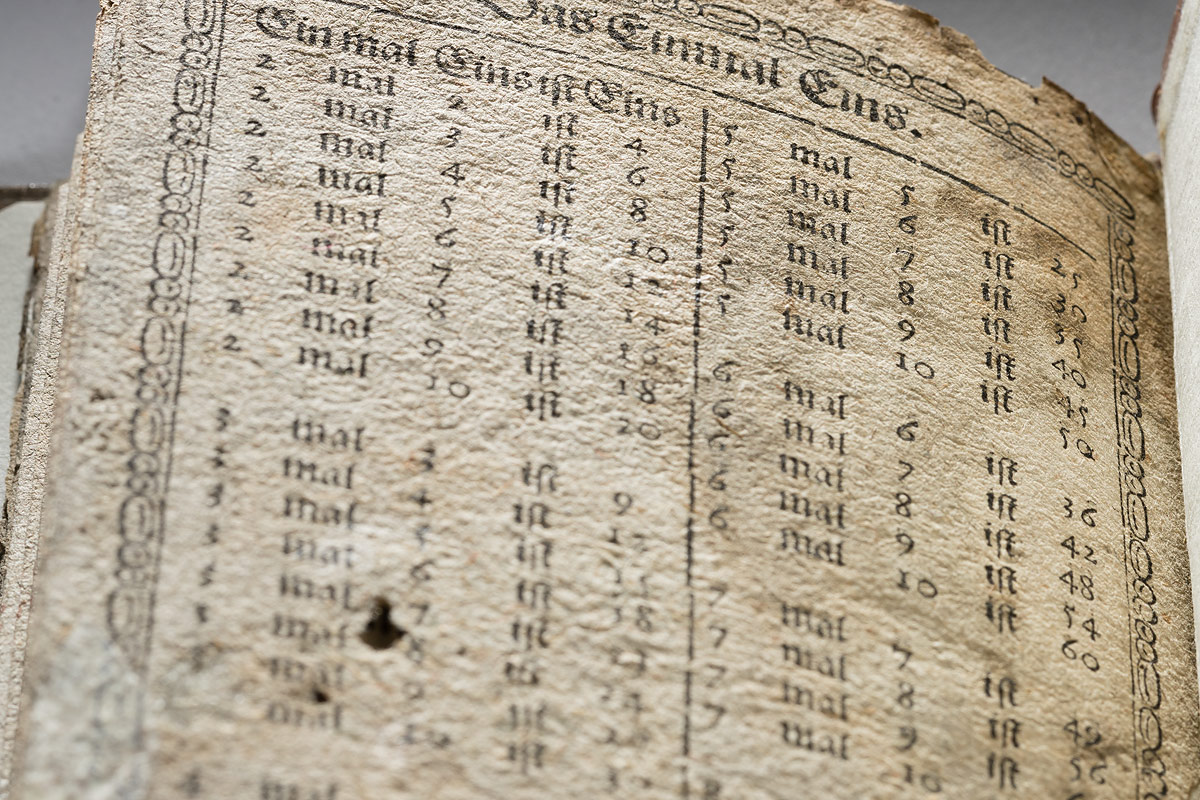 Das Einmal Eins.
Einmal Eins iſt Eins
2 mal 2 iſt 4
2 mal 3 iſt 6
2 mal 4 iſt 8
2 mal 5 iſt 10
2 mal 6 iſt 12
2 mal 7 iſt 14
2 mal 8 iſt 16
2 mal 9 iſt 18
2 mal 10 iſt 20
3 mal 3 iſt 9
3 mal 4 iſt 12
3 mal 5 iſt
3 mal 6 iſt 18
3 mal 7 iſt
mal 8 iſt 24
mal 9 iſt
mal 10 iſt
4 mal
5 mal 5 iſt 25
5 mal 6 iſt 30
5 mal 7 iſt 35
5 mal 8 iſt 40
5 mal 9 iſt 45
5 mal 10 iſt 50
6 mal 6 iſt 36
6 mal 7 iſt 42
6 mal 8 iſt 48
6 mal 9 iſt 54
6 mal 10 iſt 60
7 mal 7 iſt 49
7 mal 8 iſt 56
7 mal 9 iſt
7 mal 10
8